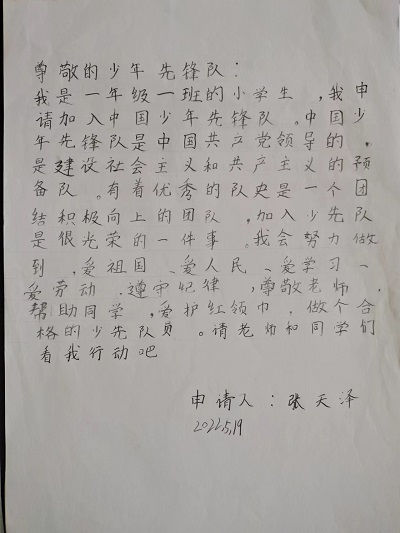 尊敬的少年先锋队：
我是一年级一班的小学生，我申
请加入中国少年先锋队。中国少
年先锋队是中国共产党领导的，
是建设社会主义和共产主义的预
备队。有着优秀的队史是一个团
结积极向上的团队，加入少先队
是很光荣的一件事。我会努力做
到，爱祖国、爱人民、爱学习、
爱劳动，遵守纪律，尊敬老师，
帮助同学，爱护红领巾，做个合
格的少先队员。请老师和同学们
看我行动吧
申请人：张天泽
2022,5,19